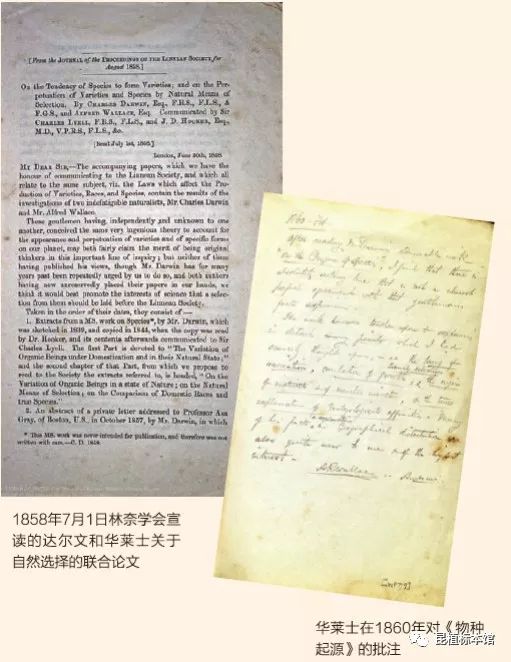 [From the JOURNAL of the PROCEEDINGS OF THE LINNEAN SOCIETY for
August 1858.]
On the Tendency of Species to form Varieties; and on the Per-
petuation of Varieties and Species by Natural Means of
Selection. By CHARLES DARWIN, Esq., F.R.S., F.L.S., &
F.G.S., and ALFRED WALLACE, Esq. Communicated by Sir
CHARLES LYELL, F.R.S., F.L.S., and J. D. HOOKER, Esq.,
M.D., V.P.R.S., F.L.S., &c.
[Read July 1st, 1858.]
London, June 30th, 1858.
MY DEAR SIR,—The accompanying papers, which we have the
honour of communicating to the Linnean Society, and which all
relate to the same subject, viz. the Laws which affect the Pro-
duction of Varieties, Races, and Species, contain the results of the
investigations of two indefatigable naturalists, Mr. Charles Darwin
and Mr. Alfred Wallace.
These gentlemen having, independently and unknown to one
another, conceived the same very ingenious theory to account for
the appearance and perpetuation of varieties and of specific forms
on our planet, may both fairly claim the merit of being original
thinkers in this important line of inquiry; but neither of them
having published his views, though Mr. Darwin has for many
years past been repeatedly urged by us to do so, and both authors
having now unreservedly placed their papers in our hands, we
think it would best promote the interests of science that a selec-
tion from them should be laid before the Linnean Society.
Taken in the order of their dates, they consist of:—
1. Extracts from a MS. work on Species*, by Mr. Darwin, which
was sketched in 1839, and copied in 1844, when the copy was read
by Dr. Hooker, and its contents afterwards communicated to Sir
Charles Lyell. The first Part is devoted to "The Variation of
Organic Beings under Domestication and in their Natural State;"
and the second chapter of that Part, from which we propose to
read to the Society the extracts referred to, is headed, "On the
Variation of Organic Beings in a state of Nature; on the Natural
Means of Selection; on the Comparison of Domestic Races and
true Species."
2. An abstract of a private letter addressed to Professor Asa
Gray, of Boston, U.S., in October 1857, by Mr. Darwin, in which
* This MS. work was never intended for publication, and therefore was not
written with care.—C. D. 1858.
1858年7月1日林奈学会宣
读的达尔文和华莱士关于
自然选择的联合论文
1860
after reading Mr Darwin's admirable work
"On the Origin of Species", I find that there is
absolutely nothing here that is not in almost
perfect agreement with that gentleman's
facts & opinions.
His work however touches upon & explains
in detail many points which I had
scarcely thought
variation,
of his facts Geographical distribution
also quite new to me & of the highest
interest.
华莱士在1860年对《物种
起源》的批注
昆植标本馆